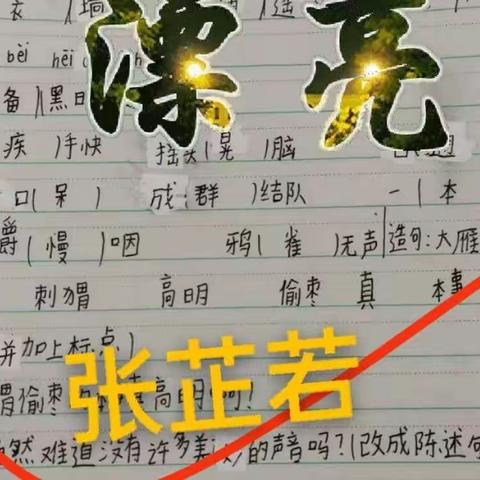 漂亮
衣 ( 墙
bèi hēi
备 ( 黑
疾 ) 手快 摇头 ( 晃 ) 脑
口 ( 呆 ) 成 ( 群 ) 结队 一 ( 本
嚼 ( 慢 ) 咽 鸦 ( 雀 ) 无声 造句:大雁
刺猬 高明 偷枣 真 本事
并加上标点 )
张芷若
猬偷枣 高明啊!
然难道没有许多美 的声音吗?(改成陈述句